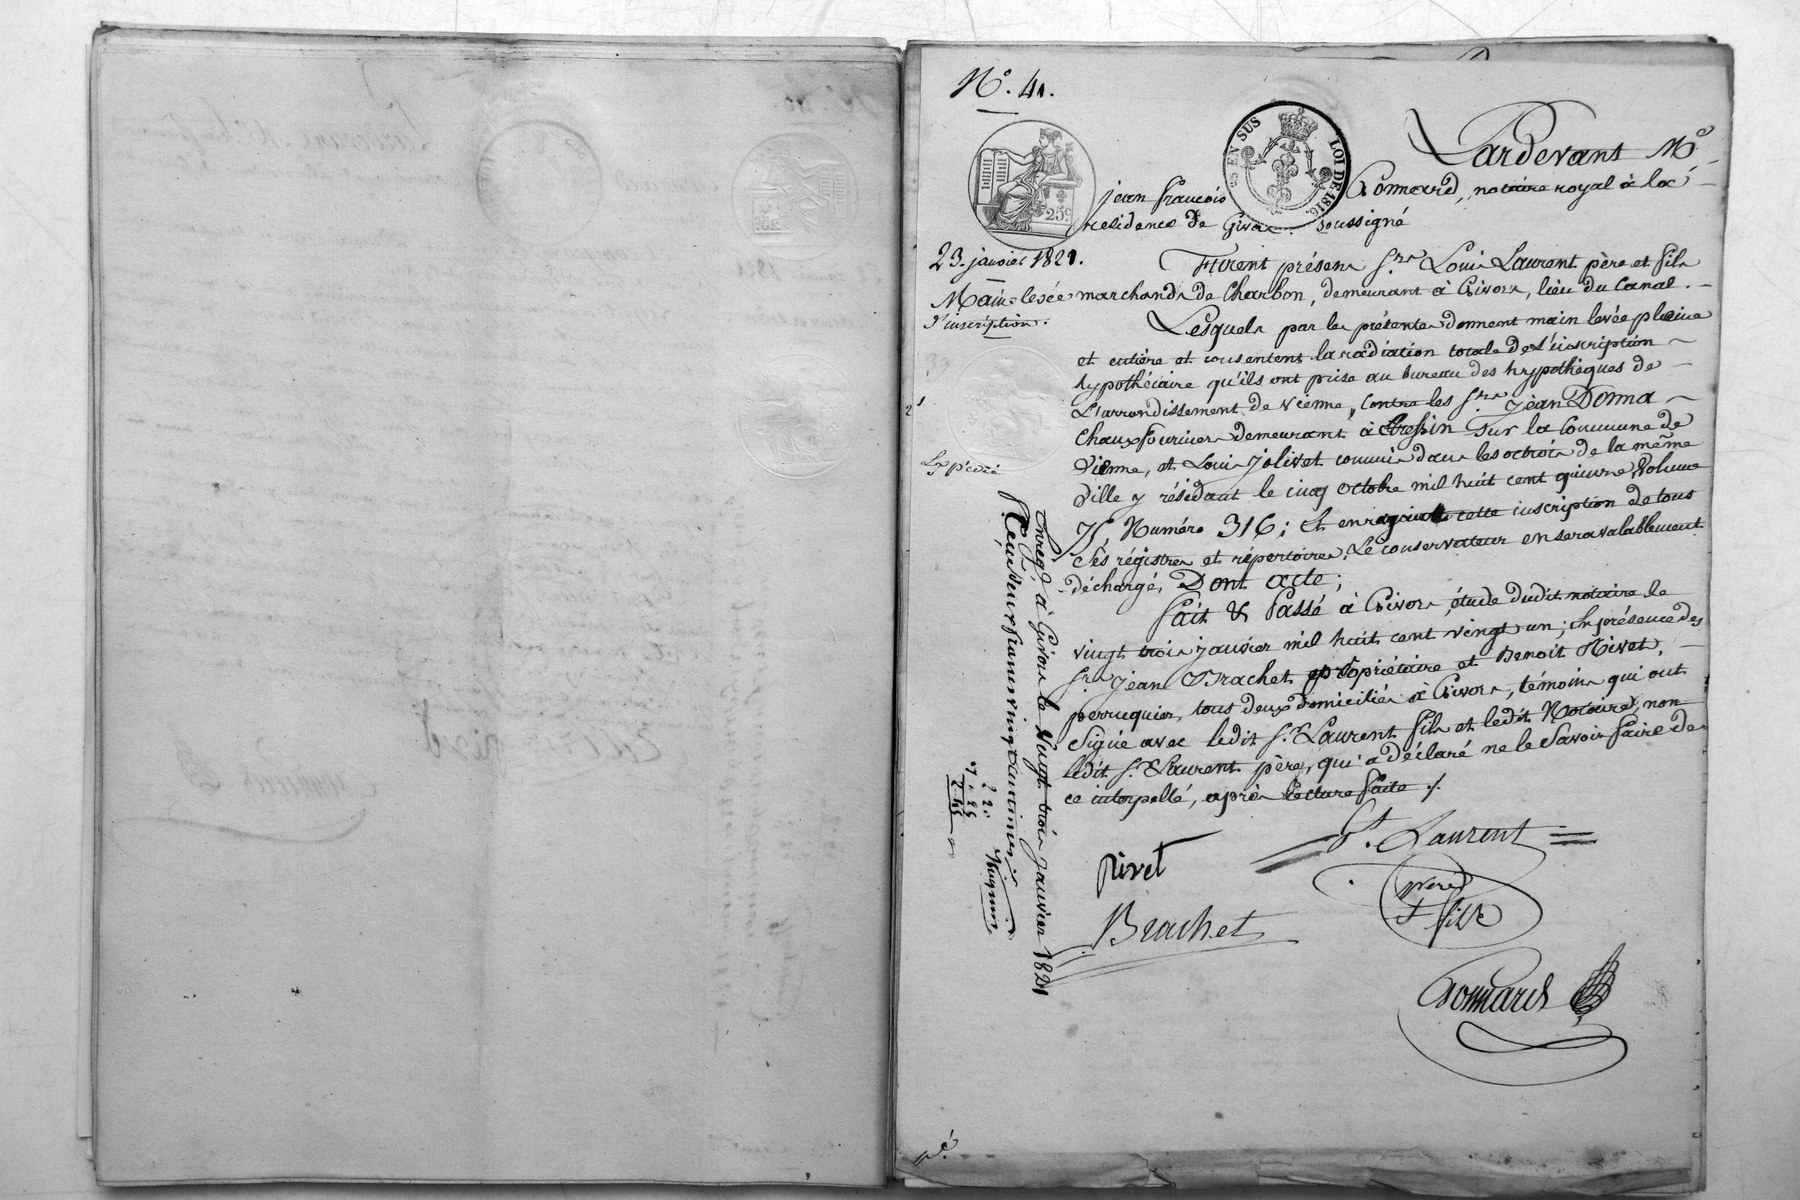 N.º 41.
25 EN SUS
LOI DE 1816.
25c
Pardevant M.e
jean françois Gonnard, notaire royal à la
résidence de Givors soussigné
23. janvier 1821.
Furent présens s.rs Louis Laurent père et fils
Main=levée
d'inscription.
marchands de Charbon, demeurant à Givors, lieu du Canal.
Lesquels par les présentes donnent main levée pleine
et entière et consentent la radiation totale de L'inscription
hypothécaire qu'ils ont prise au bureau des hypothèques de
L'arrondissement de Vienne, contre les s.rs jean Donna
chauxfournier demeurant à Estressin sur la Commune de
Vienne, et Louis Jolivet commis dans les octrois de la même
Expédié
ville y résidant le cinq octobre mil huit cent quinze, Volume
75, Numéro 316; Et en rayant cette inscription de tous
ses régistres et répertoires, Le conservateur en sera valablement
déchargé, Dont acte;
Fait & Passé à Givors, étude dudit notaire le
vingt trois janvier mil huit cent vingt un; En présence des
s.rs Jean Brachet propriétaire et Benoit Rivet,
perruquier, tous deux domiciliés à Givors, témoins qui ont
signé avec ledit s.r Laurent fils et ledit Notaire, non
ledit s.r Laurent père, qui a déclaré ne le savoir faire de
ce interpellé, après lecture faite ./.
Enreg.é à Givors le Vingt trois janvier 1821
Reçu deux francs vingt centimes
2 20
Laurent
père
& fils
Rivet
Brachet
Gonnard